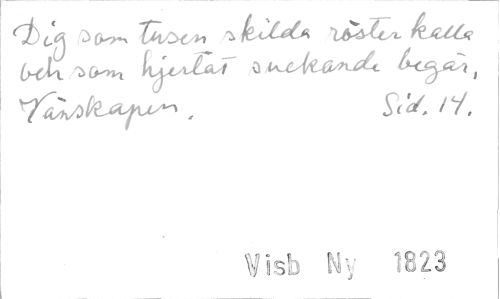 Dig som tusen skilda röster kalla
och som hjertat suckande begär,
Vänskapen. Sid. 14.
Visb Ny 1823